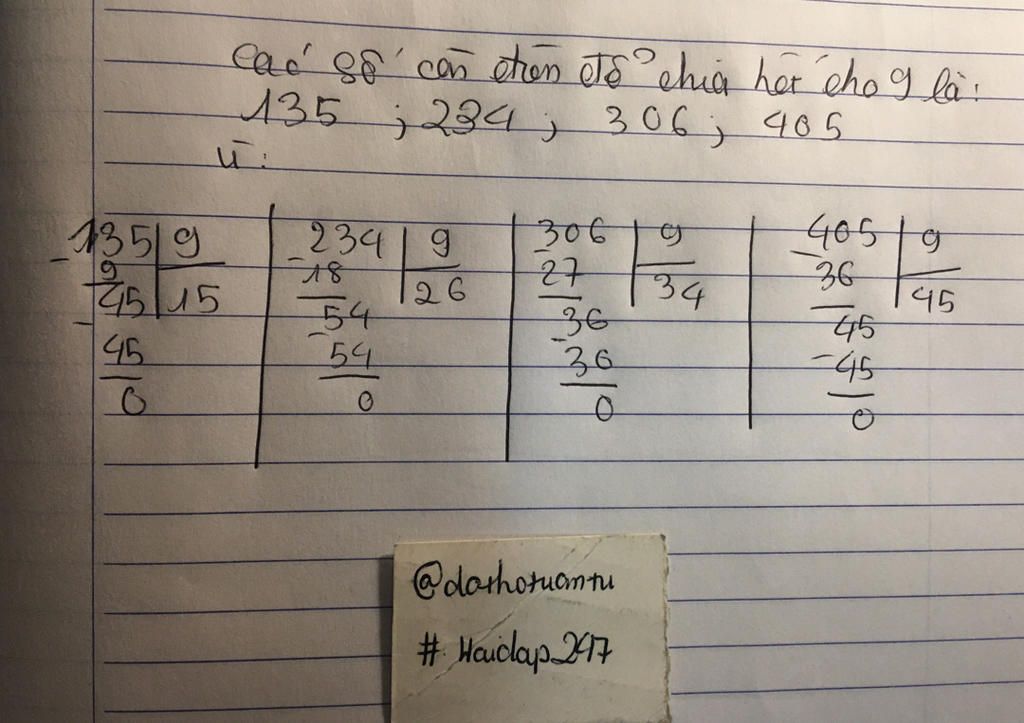 Các số cần điền để chia hết cho 9 là:
135 ; 234 ; 306 ; 405
Vì:
-135 | 9
9 | 15
-45
45
0
-234 | 9
18 | 26
-54
54
0
-306 | 9
27 | 34
-36
36
0
-405 | 9
36 | 45
45
-45
0
@dathotuantu
# Hoidap247